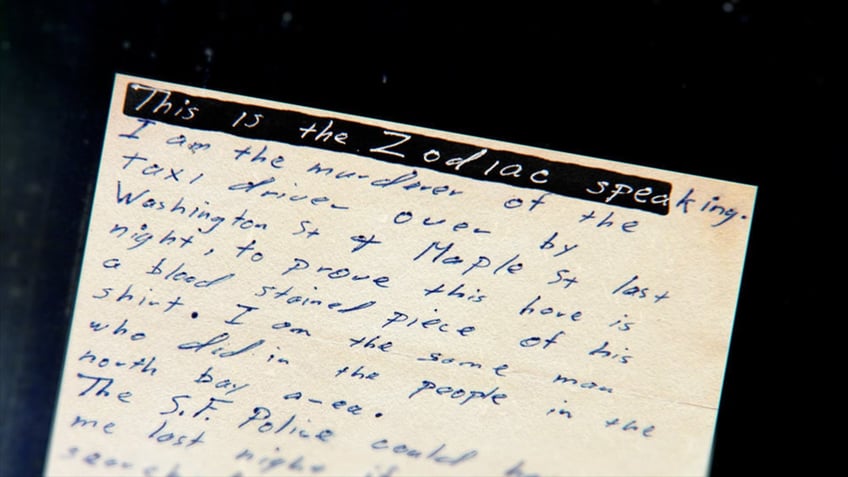 This is the Zodiac speaking.
I am the murderer of the
taxi driver over by
Washington St & Maple St last
night, to prove this here is
a blood stained piece of his
shirt. I am the same man
who did in the people in the
north bay area.
The S.F. Police could
me last night
search